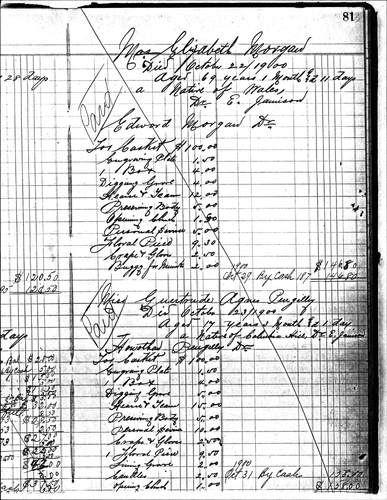 81
Mrs Elizabeth Morgan
Died October 22/1900
Aged 69 years 1 Month & 11 days
a Native of Wales,
Dr E. Jamison
Paid
Edward Morgan Dr
To Casket $100.00
Engraving Plate 1.50
1 Box 4.00
Digging Grave 4.00
Hearse & Team 12.00
Preserving Body 5.00
Opening Church 1.50
Personal Service 5.00
Floral Piece 9.30
Crape & Gloves 2.50
Buggy for Minister 2.00
1900
Oct 29 By Cash 187
$146.80
146.80
28 days
$120.50
120.50
Miss Guertrude Agnes Pengilly
Died October 23/1900
Aged 17 years 2 Month & 1 day
a Native of Columbia Hill Dr E. Jamison
Paid
Pengilly Dr
To Casket $100.00
Engraving Plate 1.50
1 Box 4.00
Digging Grave 5.00
Hearse & Team 15.00
Preserving Body 5.00
Personal Service 10.00
Crape & Gloves 2.50
1 Floral Piece 9.50
Lining Grave 2.00
Candles 2.50
Opening Church 1.00
1900
Oct 31 By Cash
$158.00
days